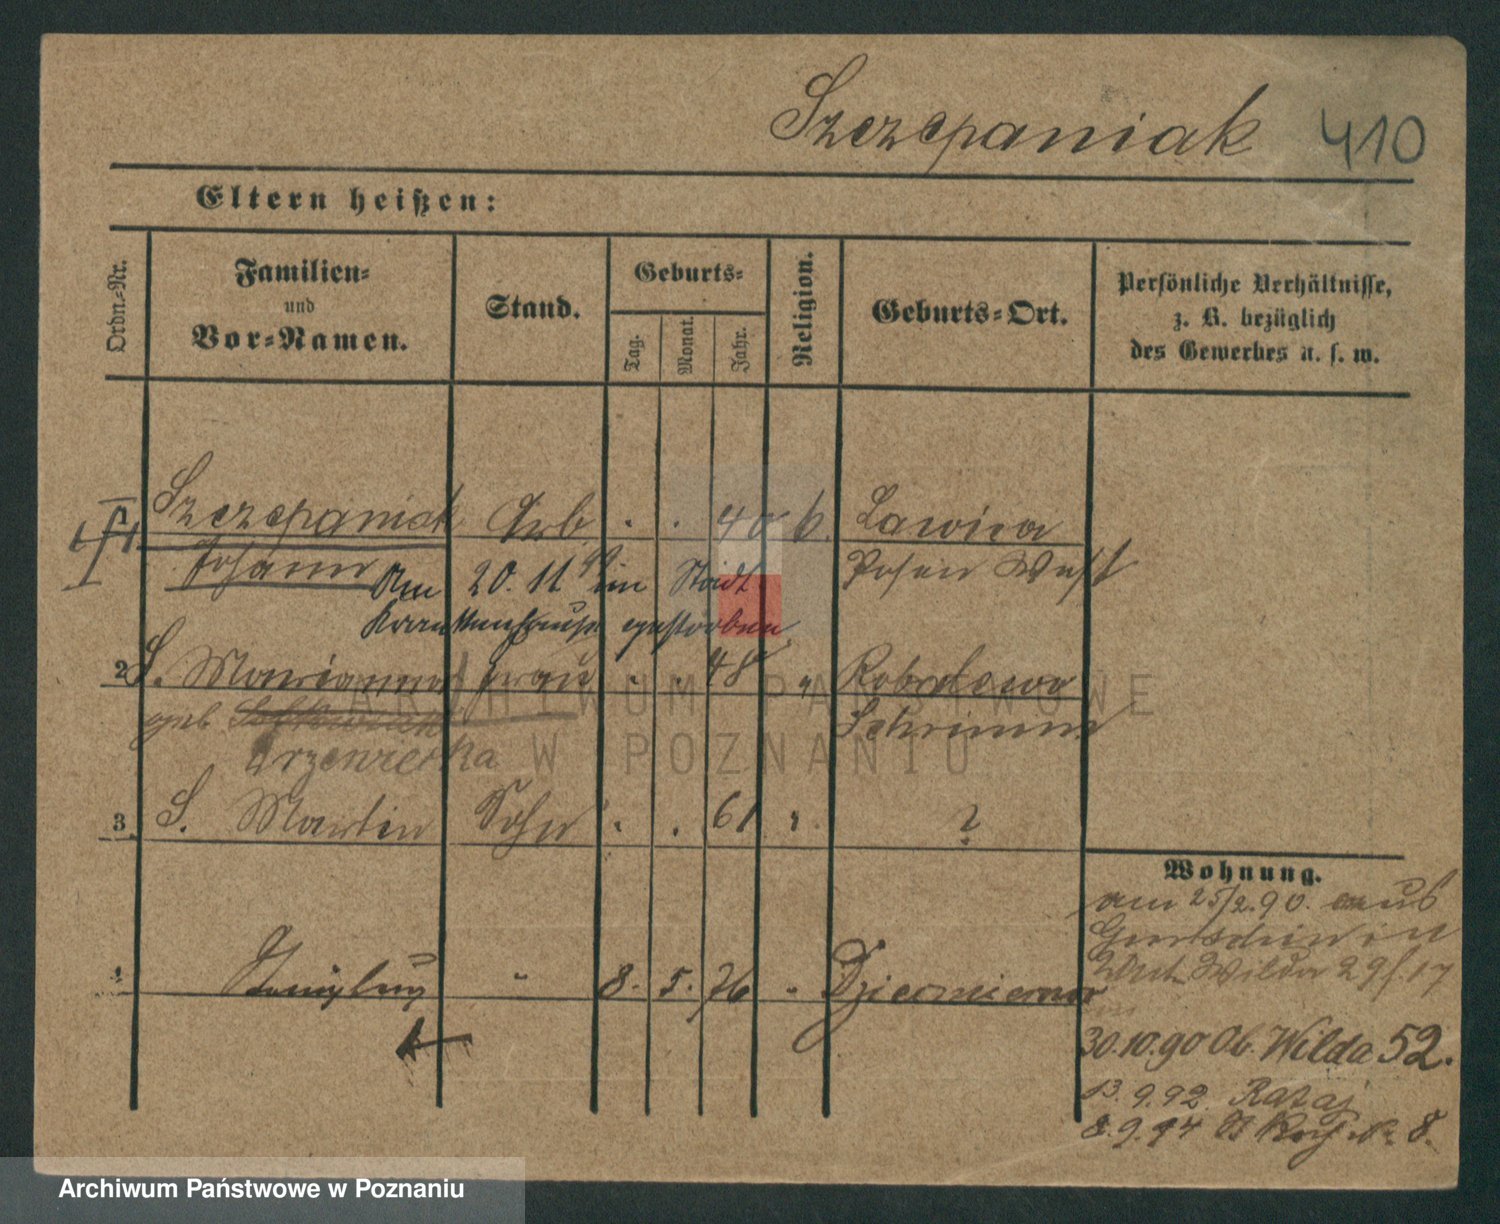 Szczepaniak 410
Eltern heißen:
Ordn.-Nr.
Familien-
und
Vor-Namen.
Stand.
Geburts-
Tag.
Monat.
Jahr.
Religion.
Geburts-Ort.
Persönliche Verhältnisse,
z. B. bezüglich
des Gewerbes u. s. w.
Szczepaniak Arb. . . 40 k. Lawica
Johann Posen West
am 20.11 im Stadt
Krankenhause gestorben
2 S. Marianna Frau . . 48 "
Schrimm
geb.
3 S. Martin Sohn . . 61 " ?
4 " 8. 5. 76 "
Wohnung.
am 25/2.90. aus
Wilda 29/17
30.10.90 Ob. Wilda 52.
13.9.92 Rataj
8.9.94 8.
ARCHIWUM PAŃSTWOWE
W POZNANIU
Archiwum Państwowe w Poznaniu